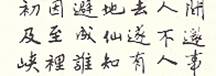 初因避地去人間
及至成仙遂不還
峽裡誰知有人事